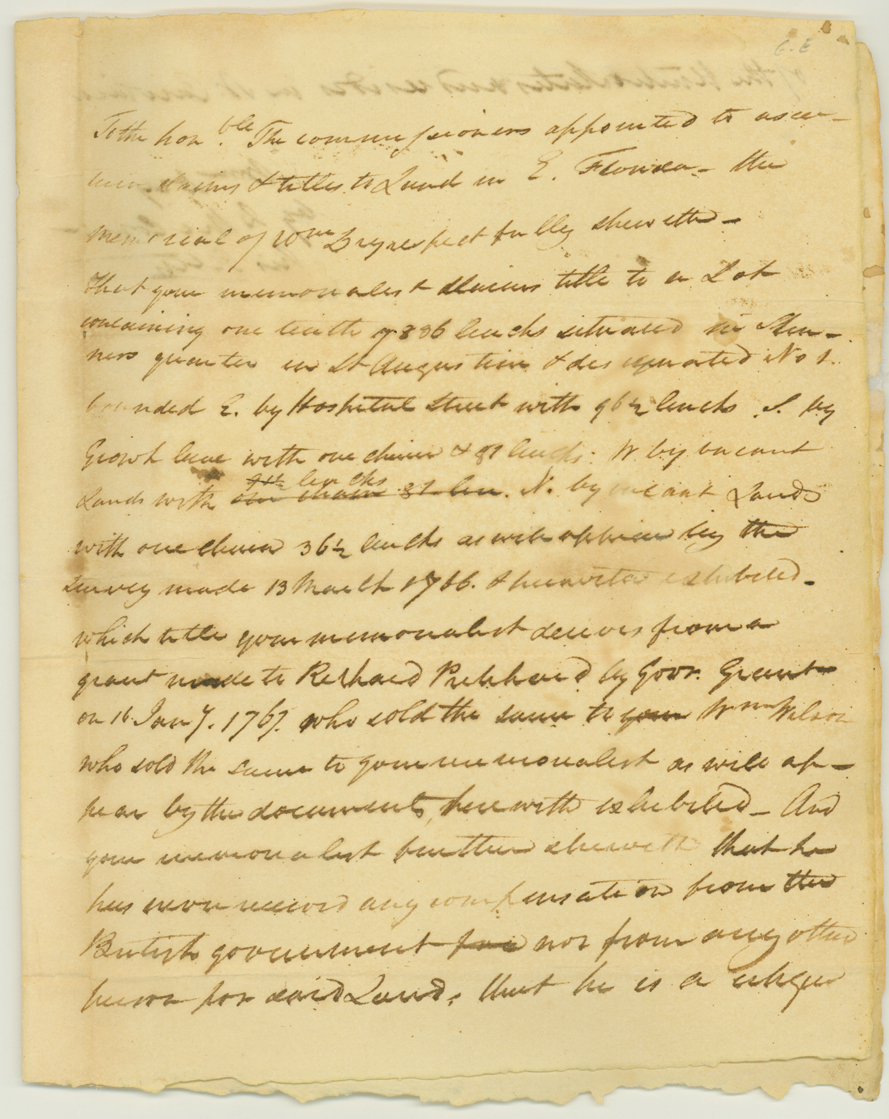 G. E
To the honble. The commissioners appointed to ascer-
tain claims & titles to Land in E. Florida - the
Memorial of Wm Dry respectfully sheweth -
That your memorialist claims title to a Lot
containing one tenth & 386 lincks situated in
quarter in St Augustine & designated No 1.
bounded E. by Hospital Street with 96½ lincks. S. by
lane with one chain & 37 lincks. W by vacant
Lands with one chain 37 lin. 91½ lincks. N. by vacant Lands
with one chain 36½ lincks as will appear by the
Survey made 13 March 1766. & herewith exhibited -
which title your memorialist derives from a
grant made to Richard by Govr. Grant
on 16 Jany. 1767. who sold the same to your Wm Wilson
who sold the same to your memorialist as will ap-
pear by the documents, herewith exhibited - And
your memorialist further sheweth that he
has never received any compensation from the
British government for nor from any other
person for said Land, that he is a